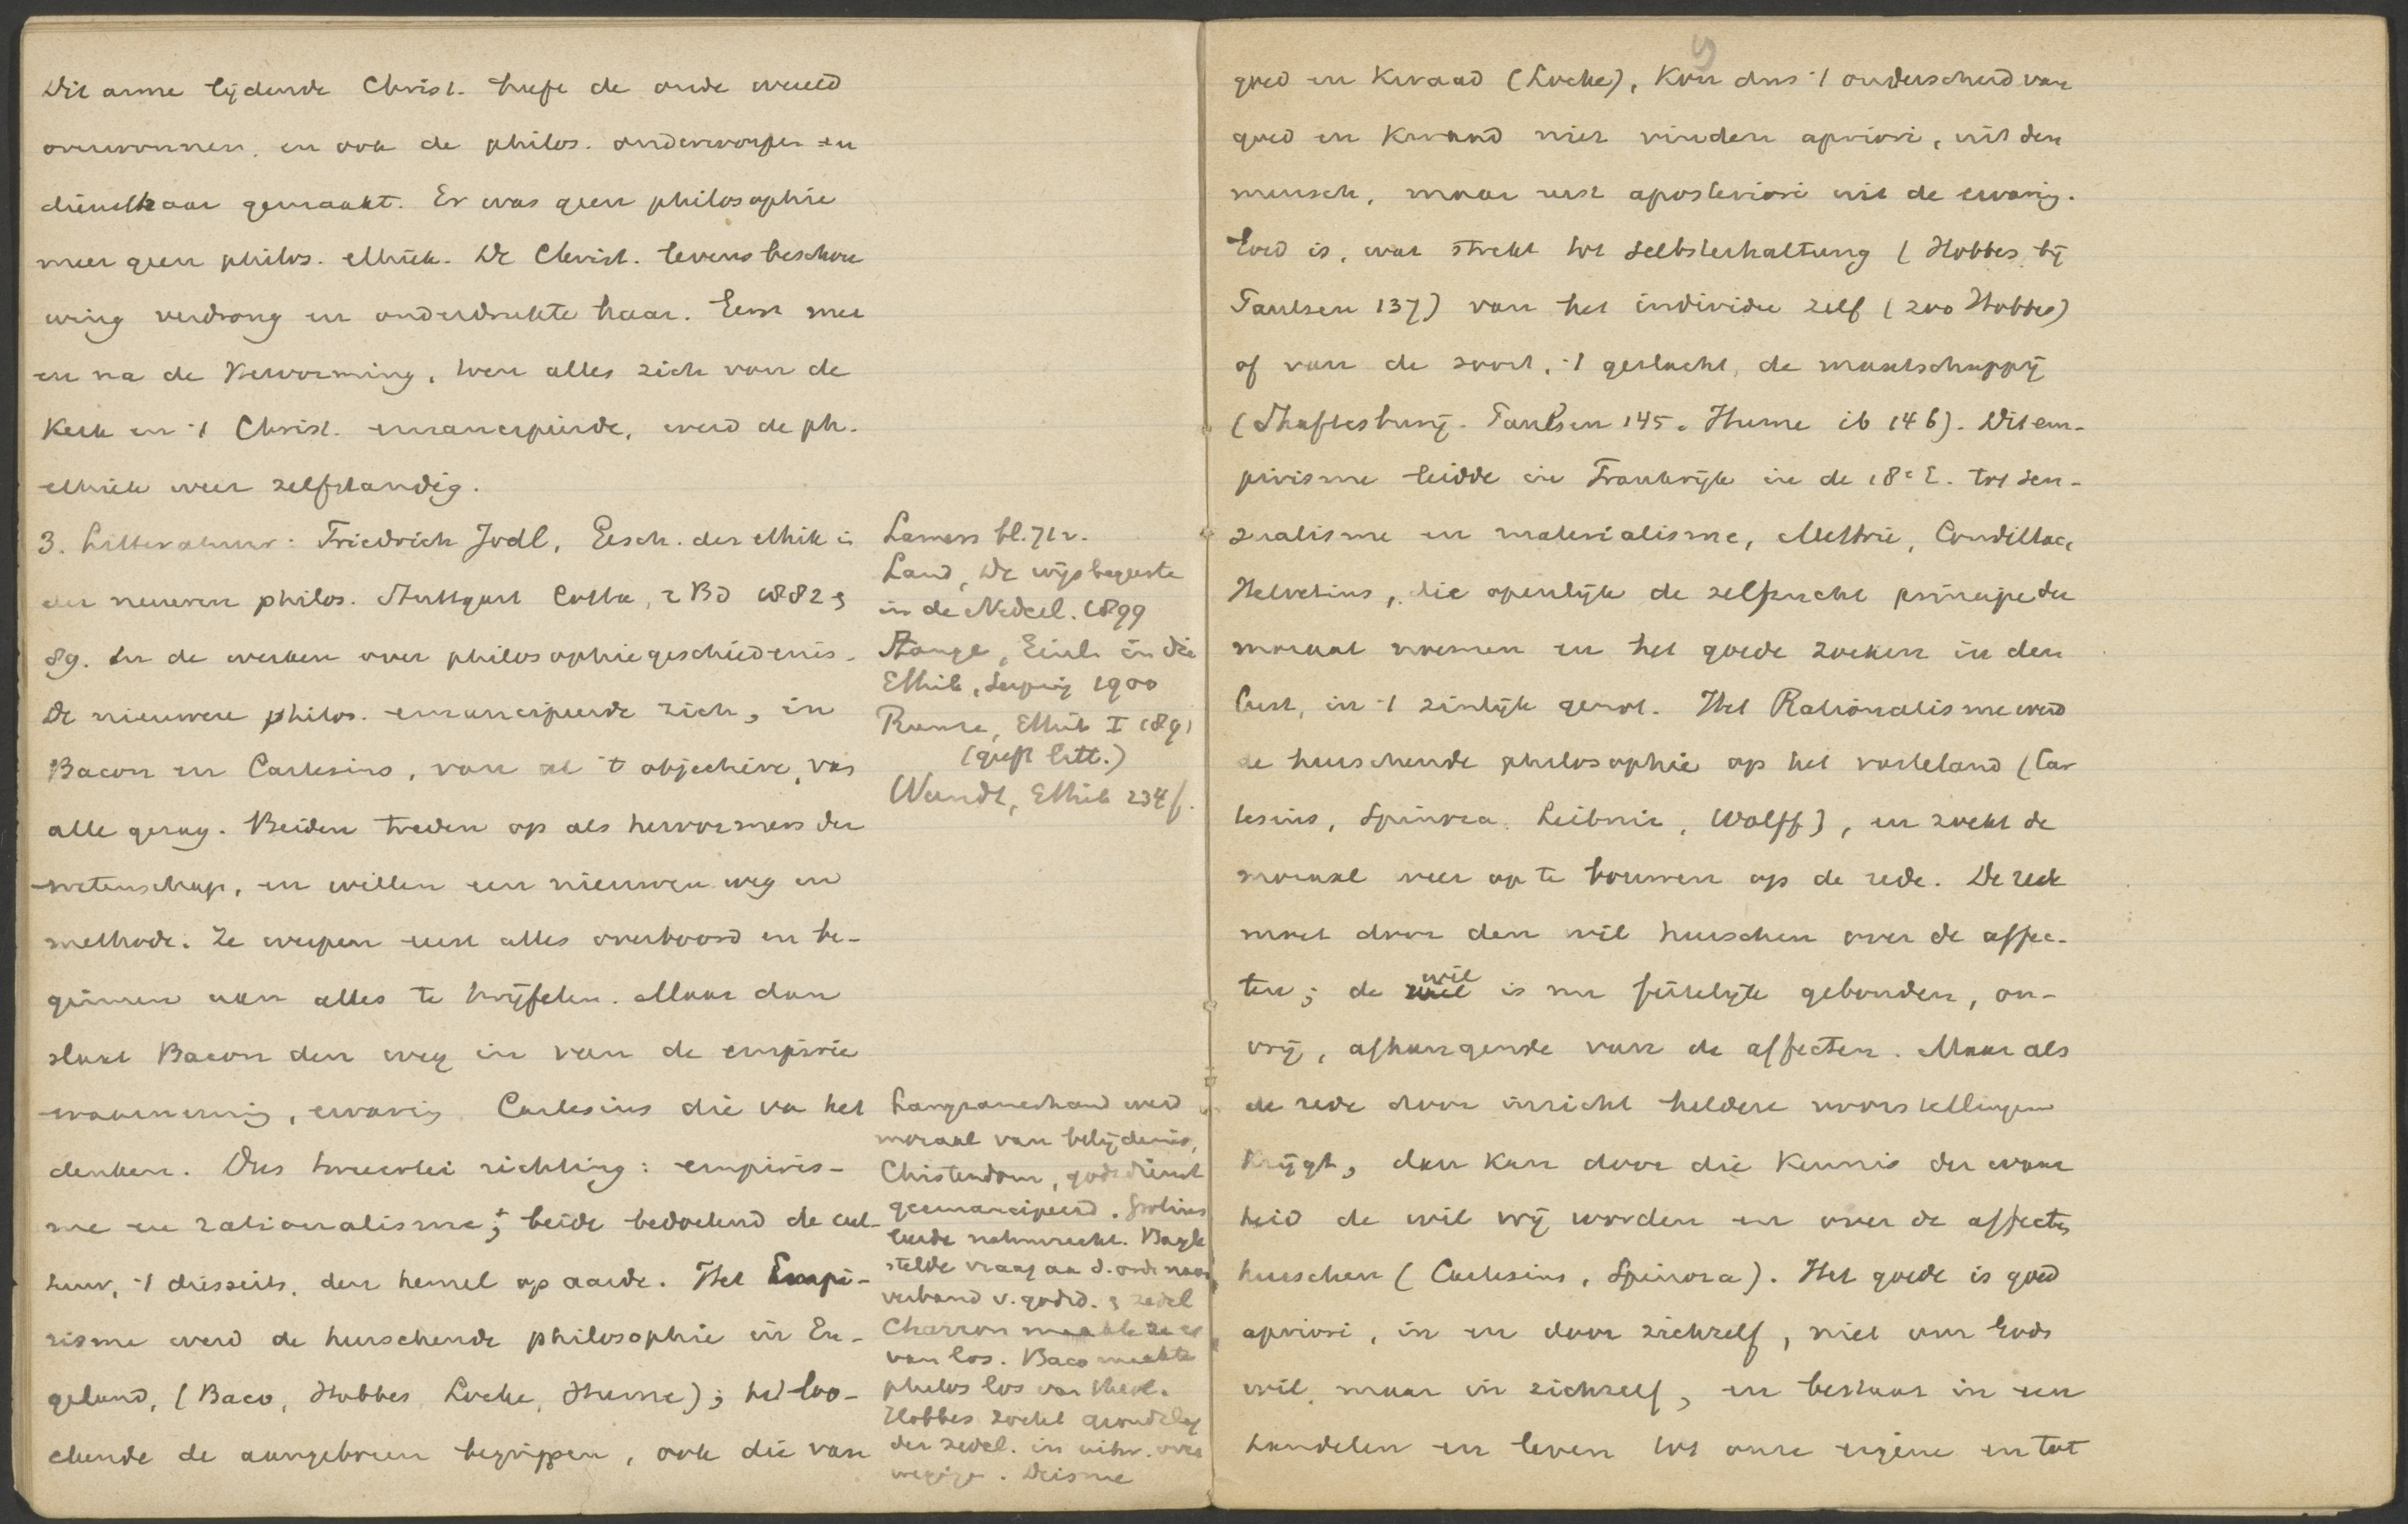 Dit arme lijdende Christ. heeft de oude wereld
overwonnen, en ook de philos. onderworpen en
dienstbaar gemaakt. Er was geen philosophie
meer geen philos. ethiek. De Christ. levensbeschou
wing verdrong en onderdrukte haar. Eerst met
en na de Hervorming, toen alles zich van de
Kerk en 't Christ. emancipeerde, werd de ph.
ethiek weer zelfstandig.
3. Litteratuur: Friedrich Jodl, Gesch. der ethik in
der neueren philos. Stuttgart Cotta, 2 Bd 1882 &
89. En de werken over philosophiegeschiedenis.
De nieuwere philos. emancipeerde zich, in
Bacon en Cartesius, van al 't objectieve, van
alle gezag. Beiden treden op als hervormers der
wetenschap, en willen een nieuwen weg en
methode. Ze werpen eerst alles overboord en be-
ginnen aan alles te twijfelen. Maar dan
slaat Bacon den weg in van de empirie
waarneming, ervaring Cartesius die van het
denken. Dus tweeërlei richting: empiris-
me en rationalisme; beide bedoelend de cul-
tuur, 't diesseits, den hemel op aarde. Het Empi-
risme werd de heerschende philosophie in En-
geland, (Baco, Hobbes, Locke, Hume); het loo-
chende de aangeboren begrippen, ook die van
Lamers bl. 71 v.
Land, De wijsbegeerte
in de Nederl. 1899
Stange, Einl. in die
Ethik, Leipzig 1900
Runze, Ethik I 1891
(geeft litt.)
Wundt, Ethik 234 f.
Langzamerhand werd
moraal van belijdenis,
Christendom, godsdienst
geemancipeerd. Grotius
leerde natuurrecht. Bayle
stelde vraag aan d. orde naar
verband v. godsd. & zedel
Charron maakte ze er
van los. Baco maakte
philos los van theol.
Hobbes zoekt grondslag
der zedel. in uitw. over
weging. Deisme
9
goed en Kwaad (Locke), Kon dus 't onderscheid van
goed en Kwaad niet vinden apriori, uit den
mensch, maar eerst aposteriori uit de ervaring.
Goed is, wat strekt tot Selbsterhaltung (Hobbes, bij
Paulsen 137) van het individu zelf (zoo Hobbes)
of van de soort, 't geslacht, de maatschappij
(Shaftesbury. Paulsen 145. Hume ib 146). Dit em-
pirisme leidde in Frankrijk in de 18e E. tot sen-
sualisme en materialisme, Mettrie, Condillac,
Helvetius, die openlijk de zelfzucht principe der
moraal noemen en het goede zoeken in den
lust, in 't zinlijk genot. Het Rationalisme werd
de heerschende philosophie op het vasteland (Car
tesius, Spinoza, Leibniz, Wolff), en zoekt de
moraal weer op te bouwen op de rede. De rede
moet door den wil heerschen over de affec-
ten; de wil is nu feitelijk gebonden, on-
vrij, afhangende van de affecten. Maar als
de rede door inzicht heldere voorstellingen
Krijgt, dan kan door die Kennis der waar
heid de wil vrij worden en over de affecten
heerschen (Cartesius, Spinoza). Het goede is goed
apriori, in en door zichzelf, niet om Gods
wil, maar in zichzelf, en bestaat in een
handelen en leven tot onze eigene en tot